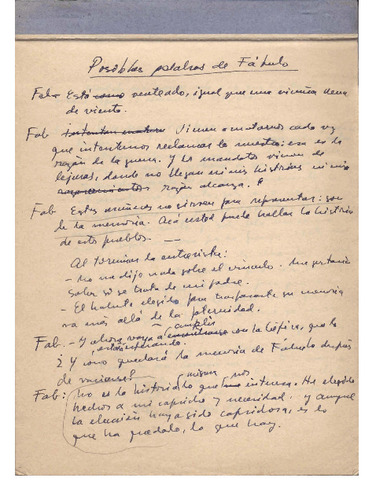 Posibles palabras de Fábulo
Fab - Está como venteado, igual que una vicuña llena
de viento.
Fab Vienen a matarnos cada vez
que intentemos reclamar lo nuestro: esa es la
razón de la guerra. Y los mandatos vienen de
lejuras, donde no llegan mis historias ni mi
razón alcanza.
Fab Estos muñecos no sirven para representar: son
de la memoria. Acá usted puede hallar la historia
de estos pueblos. —
Al terminar la entrevista:
- No me dijo nada sobre el vínculo. Me gustaría
saber si se trata de mi padre.
- El hablante elegido para traspasarte su memoria
va más allá de la paternidad.
Fab. - Y ahora voy a cumplir con la lógica, que la
estás esperando.
¿Y cómo quedará la memoria de Fábulo después
de vaciarse?
Fab: No es la historia lo que nos interesa. He elegido
hechos a mi capricho y necesidad. Y aunque
la elección haya sido caprichosa, es lo
que ha quedado, lo que hay.